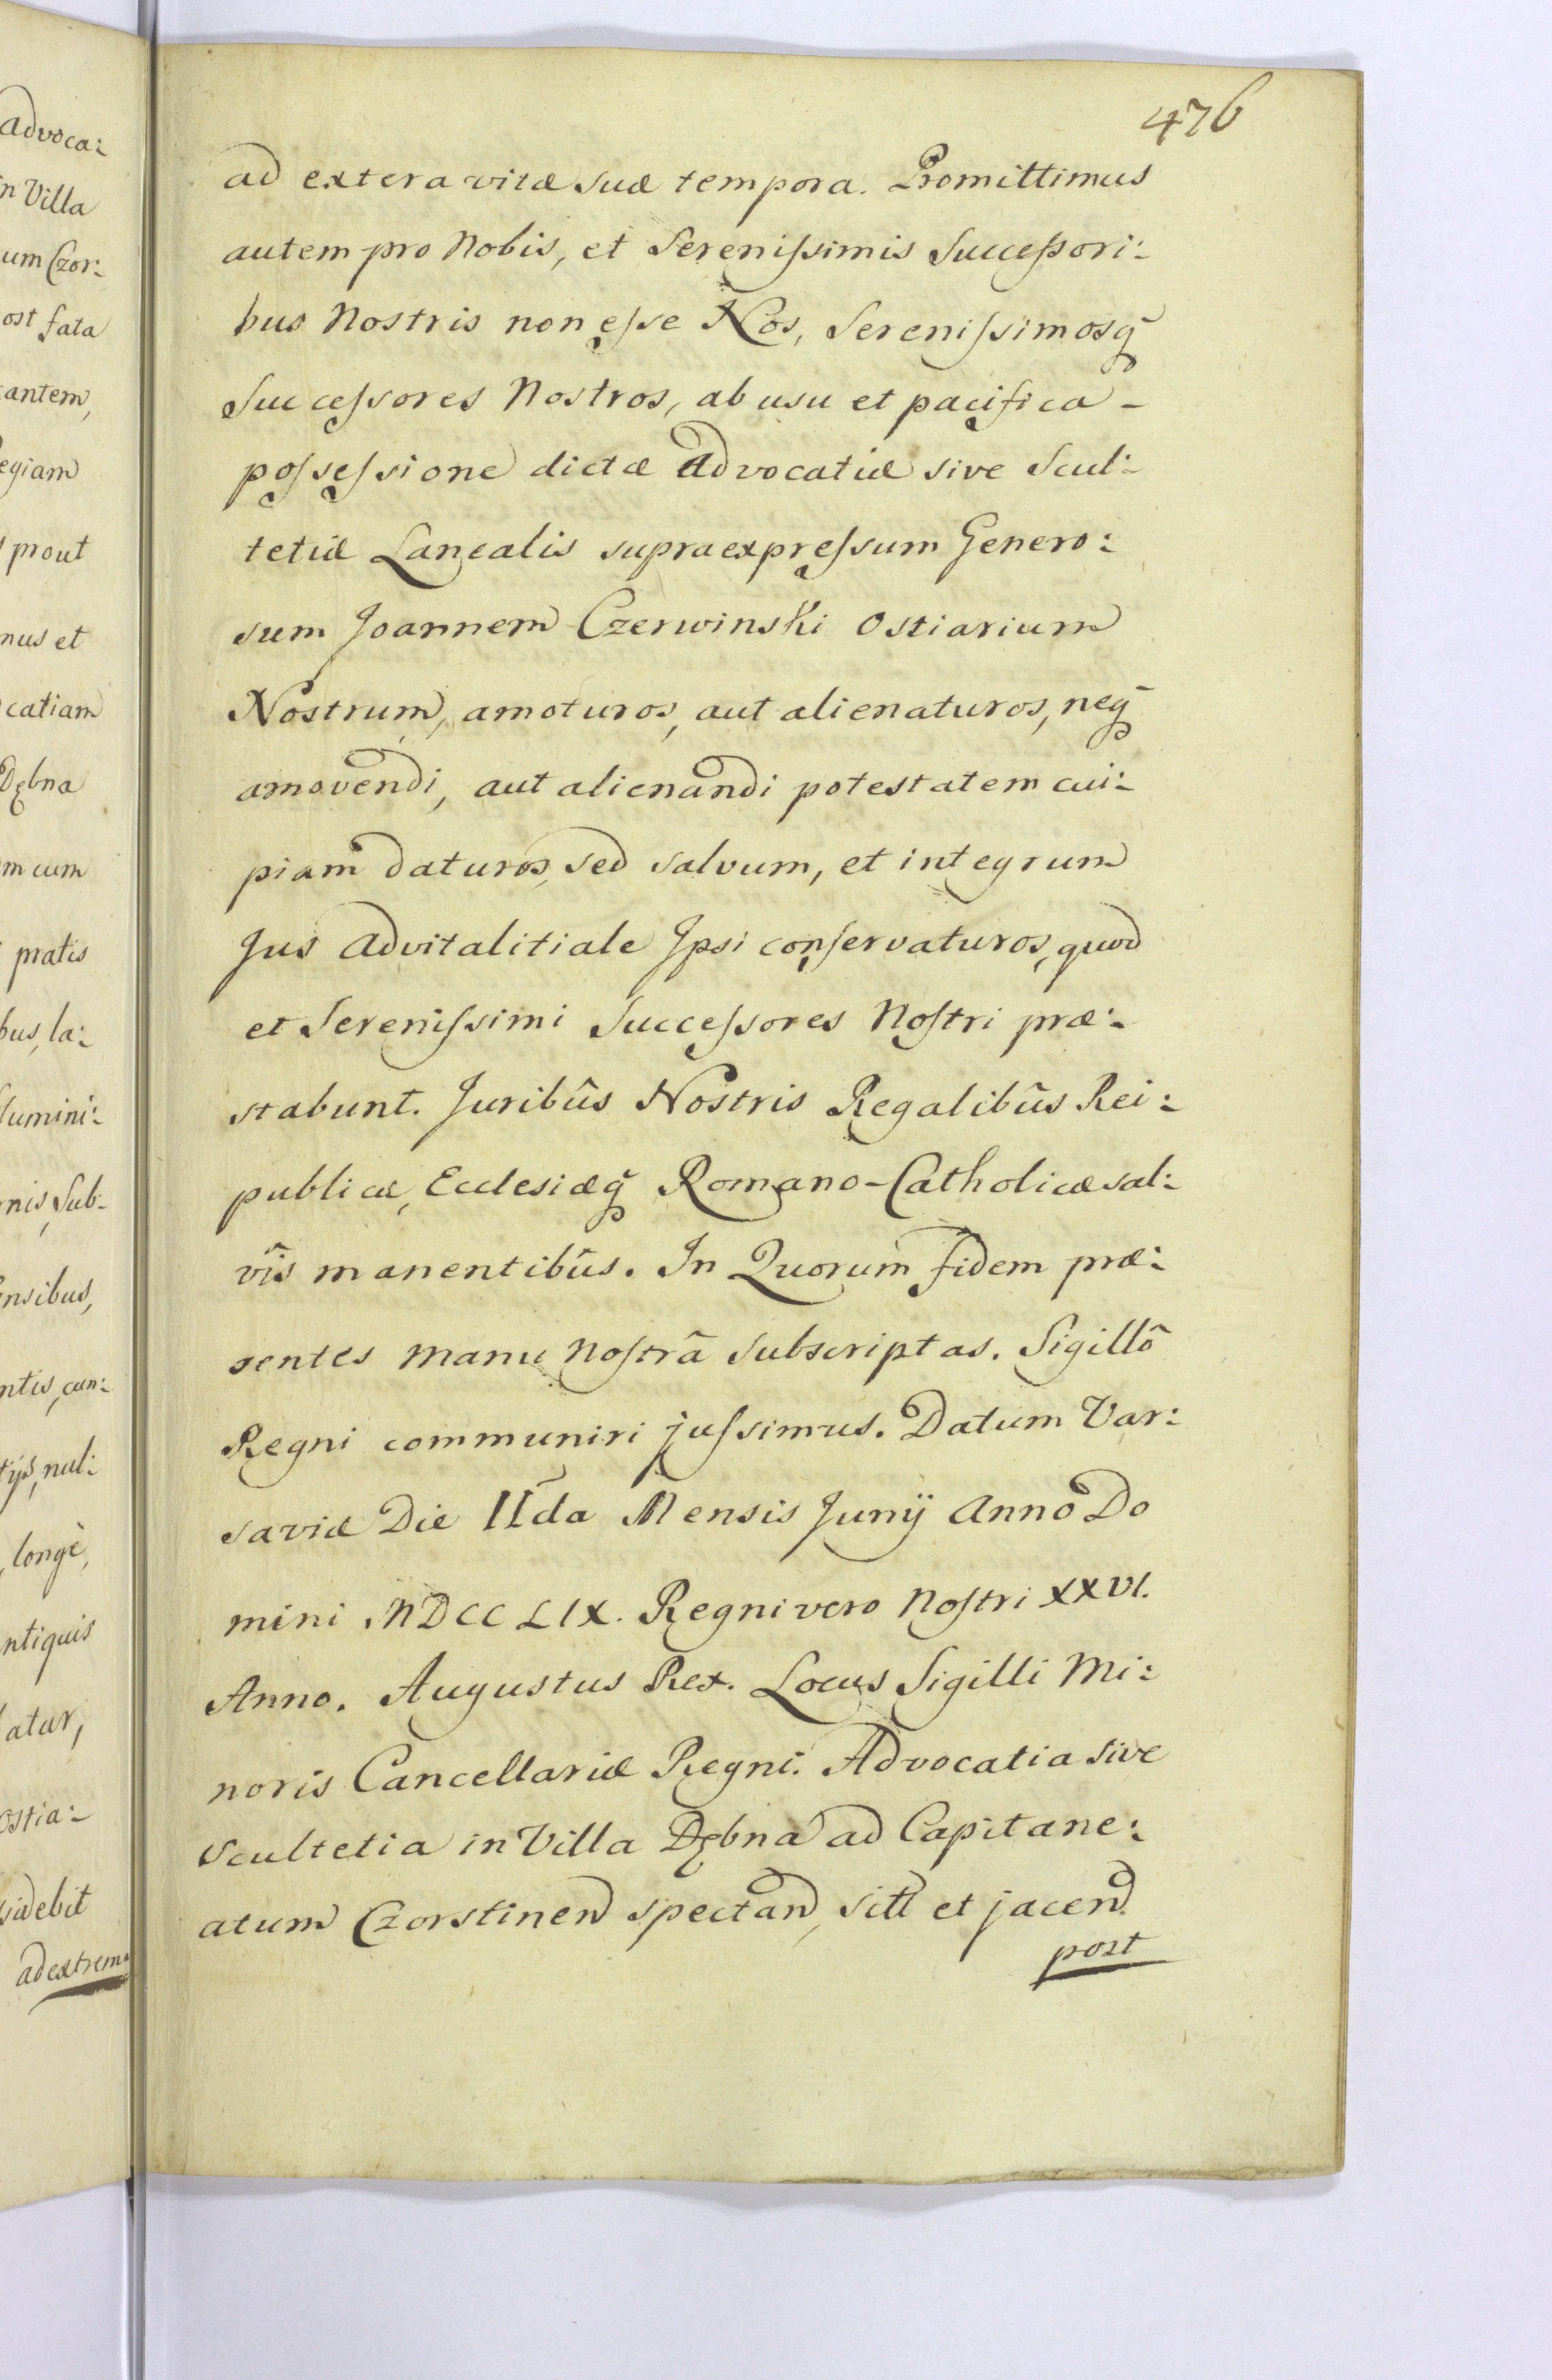 476
ad extera vitæ suæ tempora. Promittimus
autem pro Nobis, et Serenissimis Successori:
bus Nostris non esse Nos, Serenissimosq̃
Successores Nostros, ab usu et pacifica -
possessione dictæ Advocatiæ sive Scul:
tetiæ Lanealis supraexpressum Genero:
sum Joannem Czerwinski Ostiarium
Nostrum, amoturos, aut alienaturos, neq̃
amovendi, aut alienandi potestatem cui:
piam daturos, sed salvum, et integrum
Jus advitalitiale Ipsi conservaturos, quod
et Serenissimi Successores Nostri præ:
stabunt. Juribûs Nostris Regalibûs Rei:
publicæ, Ecclesiæq̃ Romano-Catholicæ sal:
vîs manentibûs. In Quorum fidem præ:
sentes manu Nostrâ subscriptas. Sigillô
Regni communiri jussimus. Datum Var:
saviæ Die IIda Mensis Junij Anno Do
mini MDCCLIX. Regni vero Nostri XXVI.
Anno. Augustus Rex. Locus Sigilli Mi:
noris Cancellariæ Regni. Advocatia sive
Scultetia in Villa Dębna ad Capitane:
atum Czorstinen spectan, sitt et jacen
post
advoca:
in Villa
um Czor:
ost fata
tantem,
egiam
prout
nus et
catiam
Dębna
m cum
pratis
bus, la:
lumini:
nis, Sub:
ensibus,
ntis, cun:
tijs, nul:
longè,
ntiquis
latur,
Ostia:
sidebit
ad extrema